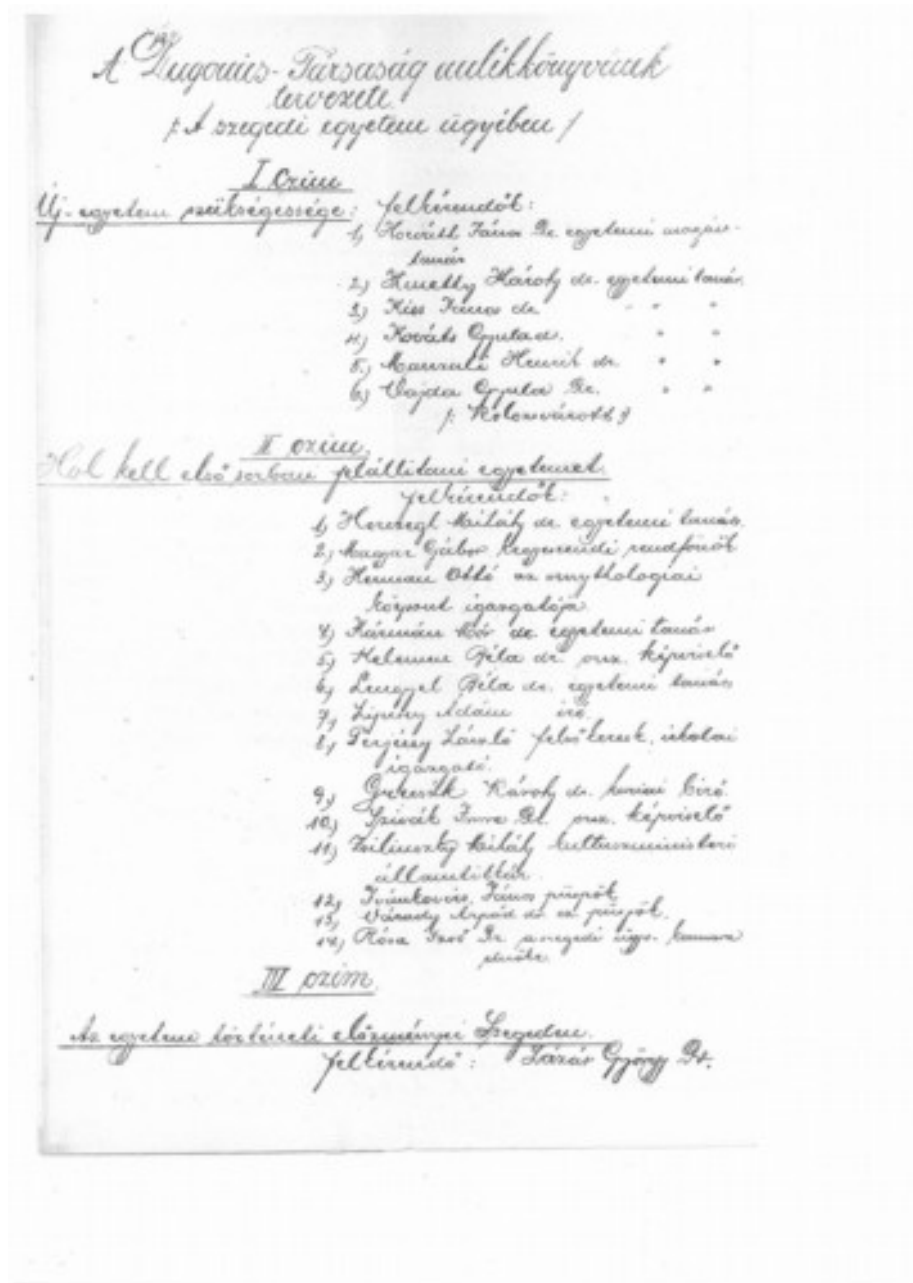 A Dugonics-Társaság emlékkönyvének
tervezete.
/: A szegedi egyetem ügyében /
I Czim
Új-egyetem szükségessége: felkérendők:
1, Horváth János Dr. egyetemi magán-
tanár
2,) Kmetty Károly dr. egyetemi tanár.
3,) Kiss János dr. " " "
4,) Kováts Gyula dr. " "
5.) Marczali Henrik dr. " "
6,) Vajda Gyula Dr. " "
/: Kolozsvárott :/
II czim.
Hol kell első sorban felállitani egyetemet.
felkérendők:
1, Herczegh Mihály dr. egyetemi tanár.
2,) Magyar Gábor kegyesrendi rendfőnök
3,) Herman Ottó az ornythologiai
központ igazgatója
4,) Kármán Mór dr. egyetemi tanár
5,) Kelemen Béla dr. orsz. képviselő
6,) Lengyel Béla dr. egyetemi tanár
7, Lipcsey Ádám iró
8, Perjéssy László felső keresk. iskolai
igazgató.
9,) Károly dr. kuriai biró.
10,) Szivák Imre Dr. orsz. képviselő
11,) Zsilinszky Mihály kultuszministeri
államtitkár.
12, Ivánkovics János püspök
13, Várady Árpád dr. cz. püspök.
14,) Rósa Izsó Dr. a szegedi ügyv. kamara
elnöke.
III czim.
Az egyetem történeti előzményei Szegeden.
felkérendő: Lázár György Dr.